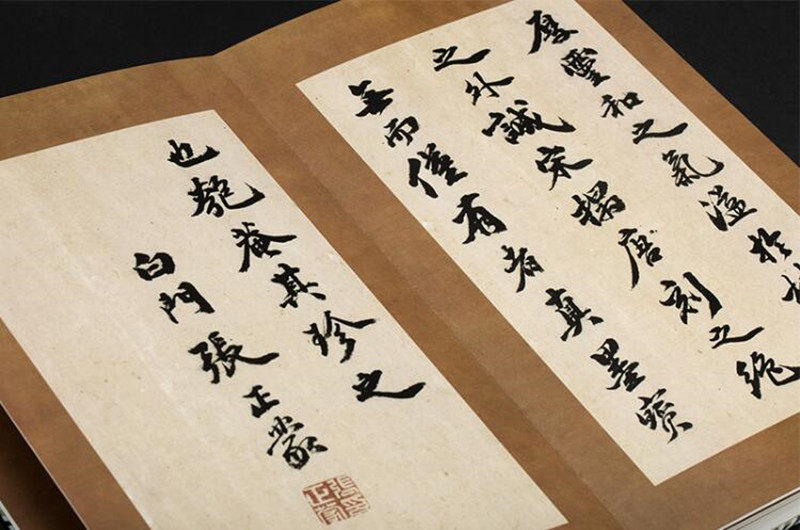 厚靈和之氣溢於
之外誠宋搨唐刻之絕
無而僅有者真墨寶
也匏菴其珍之
白門張正蒙
張印正蒙